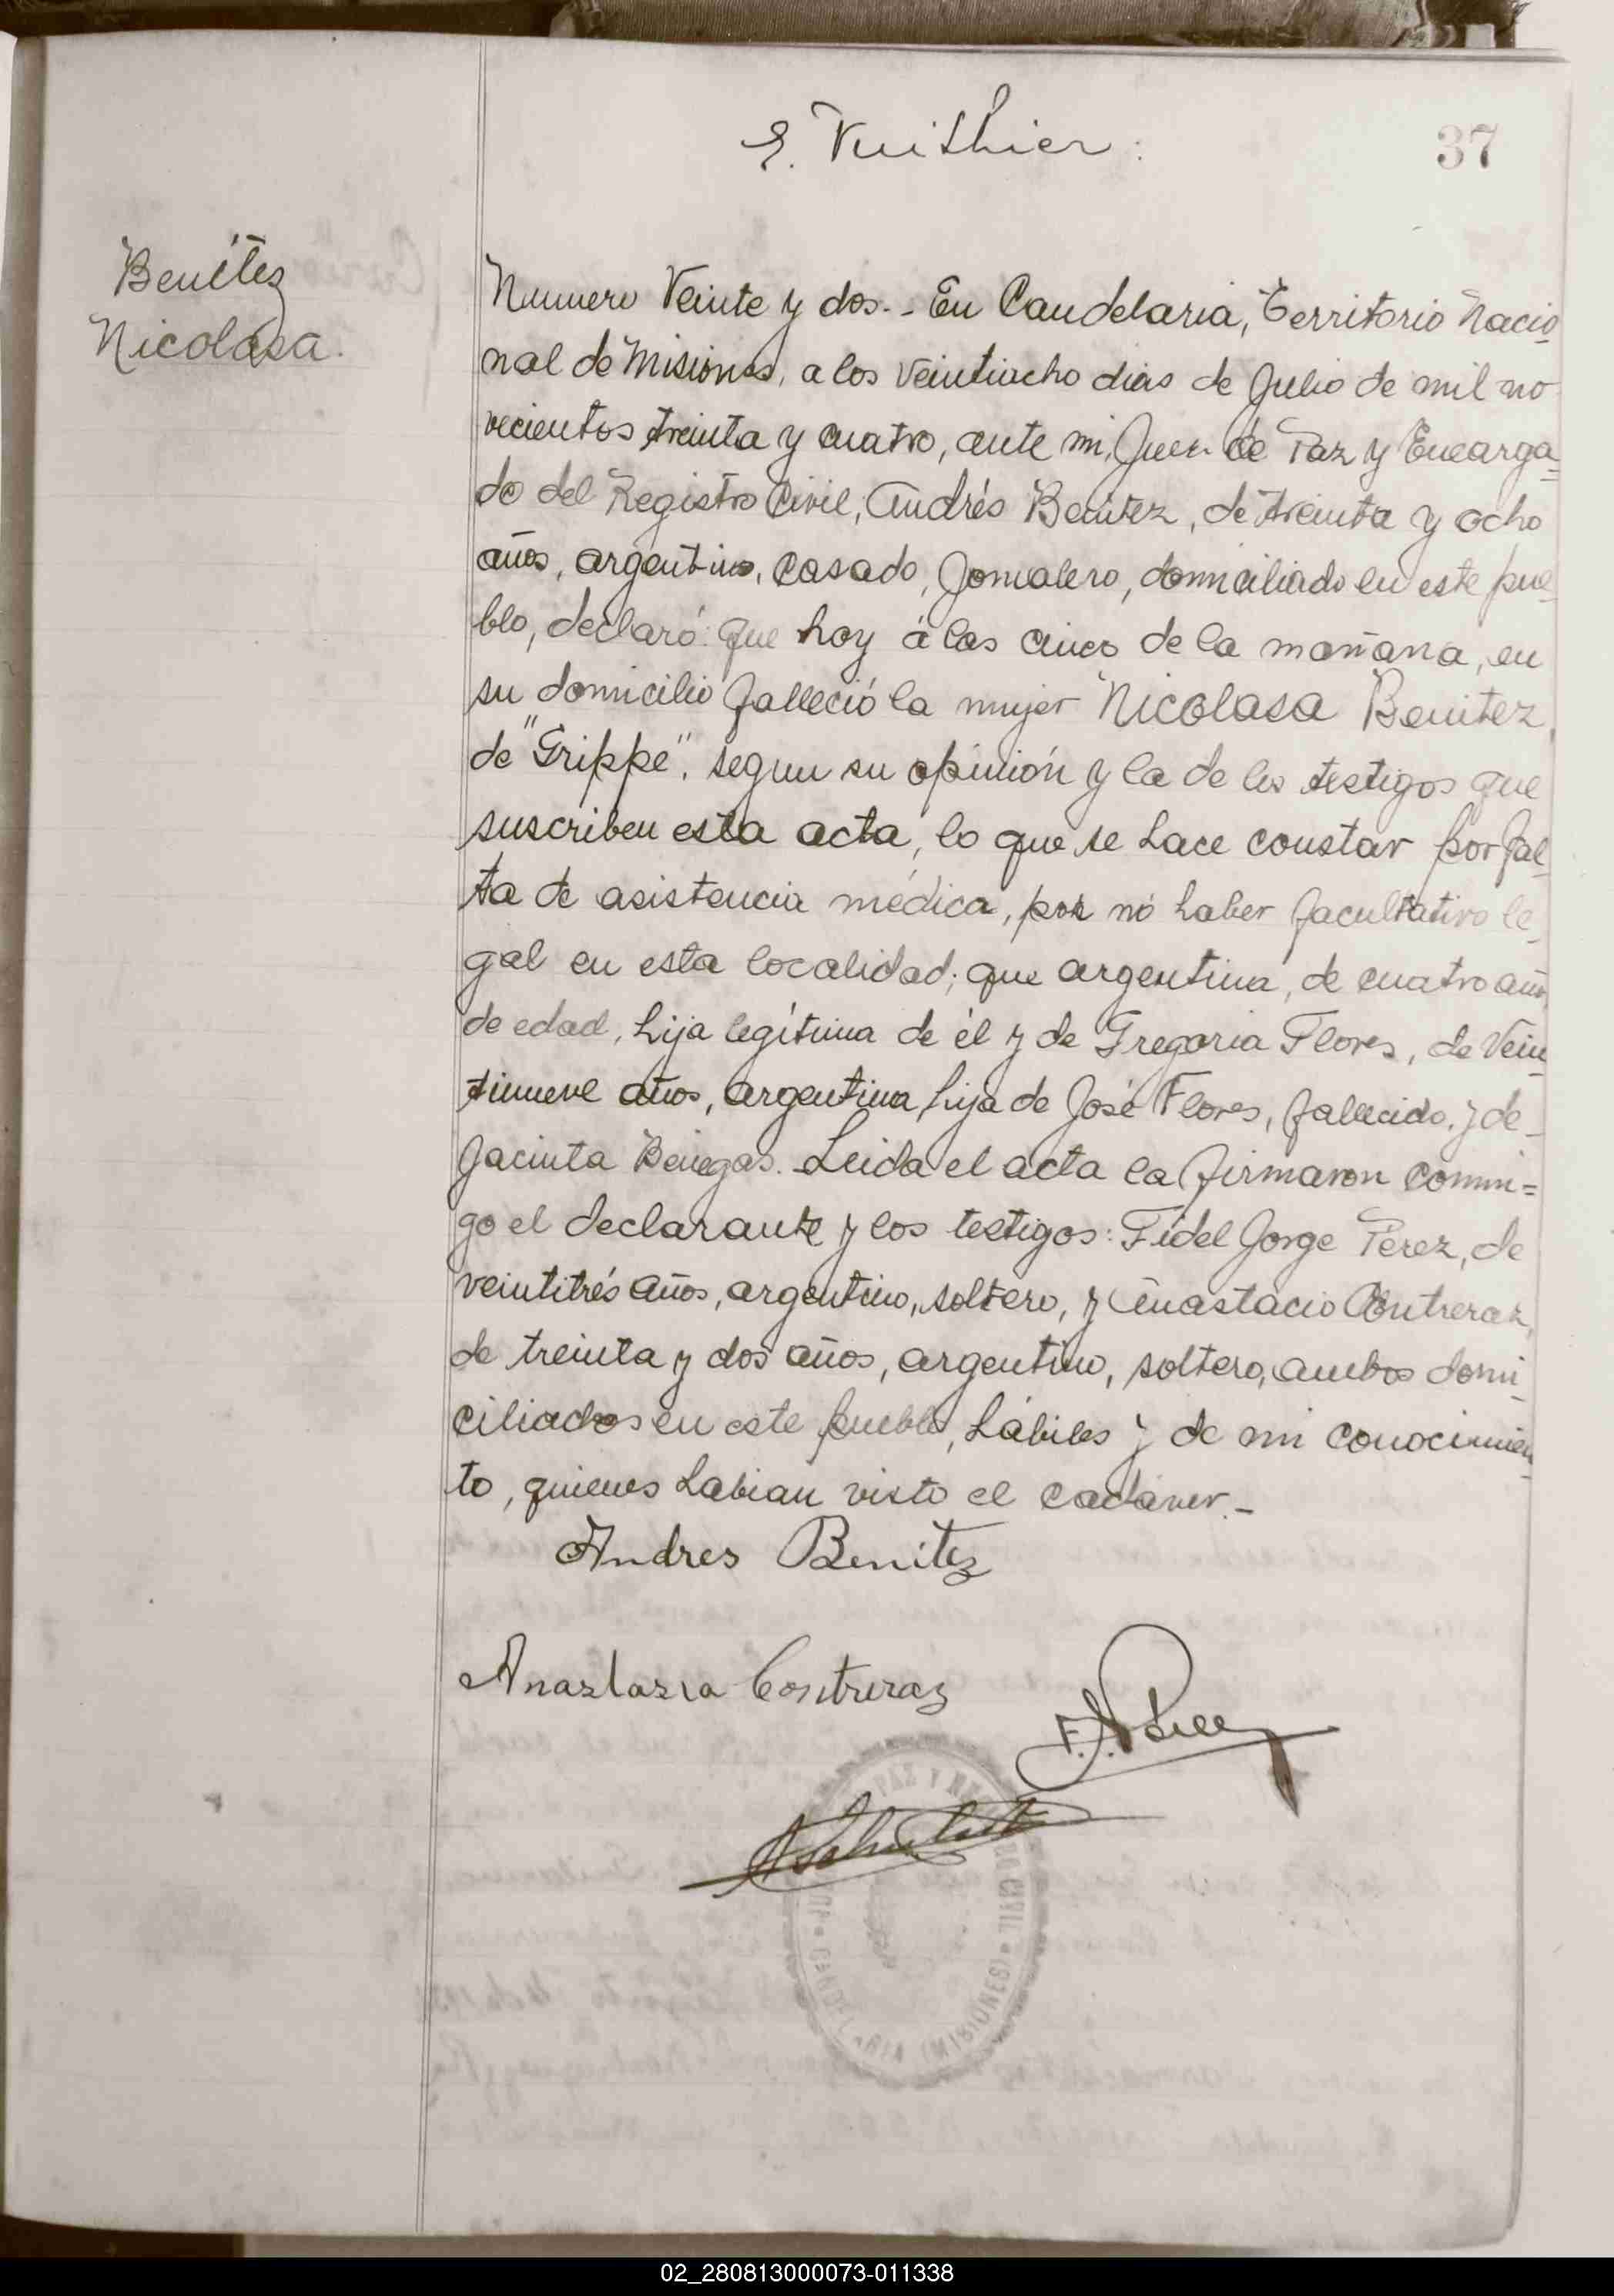 E. Vuithier:
37
Benítez
Nicolasa.
Numero Veinte y dos.- En Candelaria, Territorio Nacio
nal de Misiones, a los veintiocho dias de Julio de mil no
vecientos treinta y cuatro, ante mi, Juez de Paz y Encarga
do del Registro Civil, Andrés Benitez, de treinta y ocho
años, argentino, casado, Jornalero, domiciliado en este pue
blo, declaró: que hoy á las cinco de la mañana, en
su domicilio falleció la mujer Nicolasa Benitez
de "Grippe", segun su opinión y la de los testigos que
suscriben esta acta, lo que se hace constar por fal
ta de asistencia médica, por nó haber facultativo le
gal en esta localidad; que argentina, de cuatro años
de edad, hija legítima de él y de Gregoria Flores, de Vein
tinueve años, argentina hija de José Flores, fallecido, y de
Jacinta Benegas. Leida el acta la firmaron conmi=
go el declarante y los testigos: Fidel Jorge Pérez, de
veintitrés años, argentino, soltero, y Anastacio Contreraz,
de treinta y dos años, argentino, soltero, ambos domi
ciliados en este pueblo, hábiles y de mi conocimien
to, quienes habian visto el cadáver.-
Andres Benitez
Anaztazia Contreraz
F. J. Pérez
PAZ Y RE CIVIL
CANDELARIA (MISIONES)
02_280813000073-011338